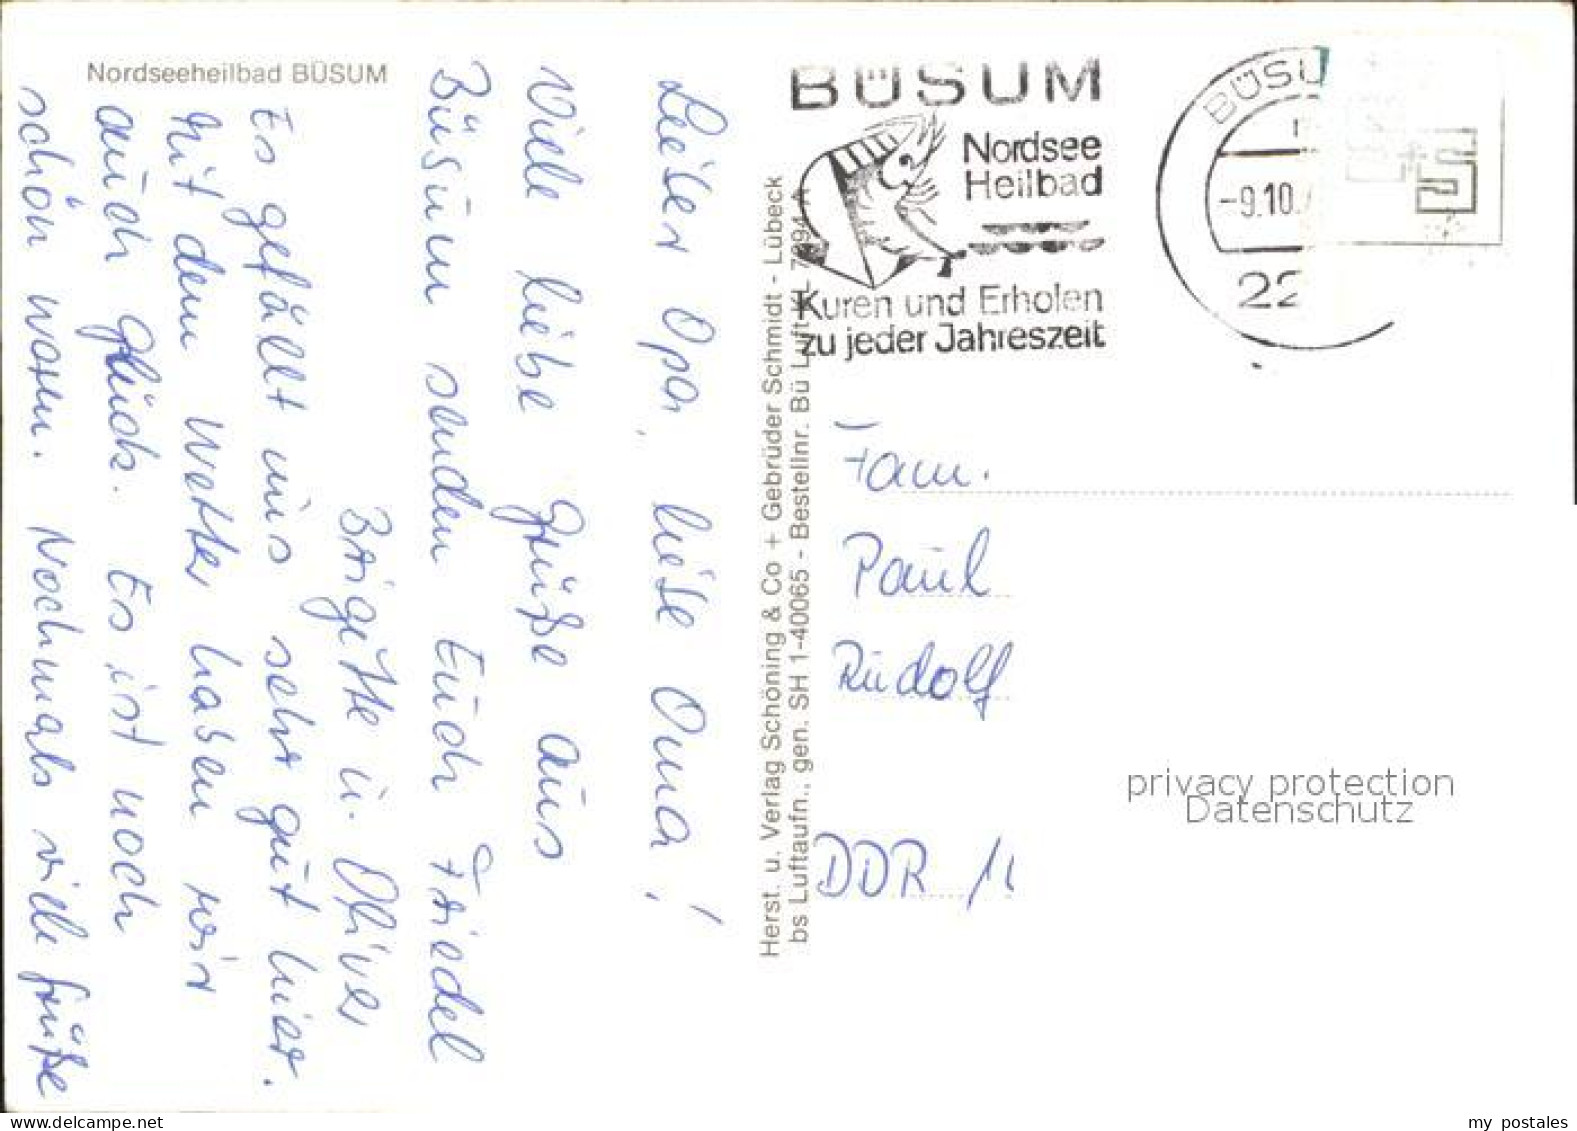 Nordseeheilbad BÜSUM
Lieber Opa, liebe Oma!
Viele liebe Grüße aus
Büsum senden Euch Friedel
Brigitte u. Oliver
Es gefällt uns sehr gut hier.
Mit dem Wetter haben wir
auch Glück. Es ist noch
schön warm. Nochmals viele Grüße
Herst. u. Verlag Schöning & Co + Gebrüder Schmidt - Lübeck
bs Luftaufn., gen. SH 1-40065 - Bestellnr. Bü Luft
BÜSUM
Nordsee
Heilbad
Kuren und Erholen
zu jeder Jahreszeit
BÜSU
-9.10.
22
Fam.
Paul
Rudolf
DDR
privacy protection
Datenschutz
my postales